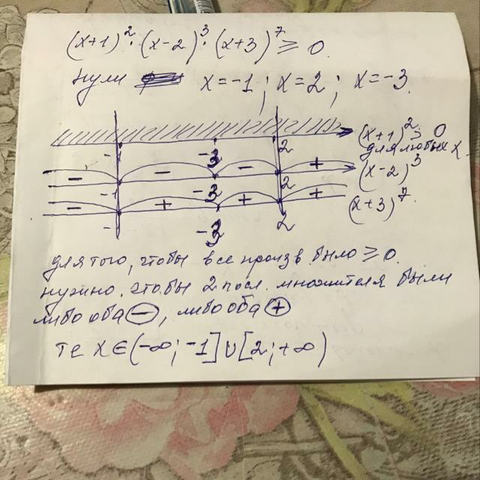 (x+1)²·(x-2)³·(x+3)⁷ ≥ 0.
нули x=-1; x=2; x=-3.
(x+1)²≥0
для любых x.
-1 -3 2
− − − + (x-2)³
-1 -3 2
− + + + (x+3)⁷
-1 -3 2
для того, чтобы все произв было ≥0.
нужно, чтобы 2 посл. множителя были
либо оба ⊖, либо оба ⊕
те x∈(-∞;-1]∪[2;+∞)